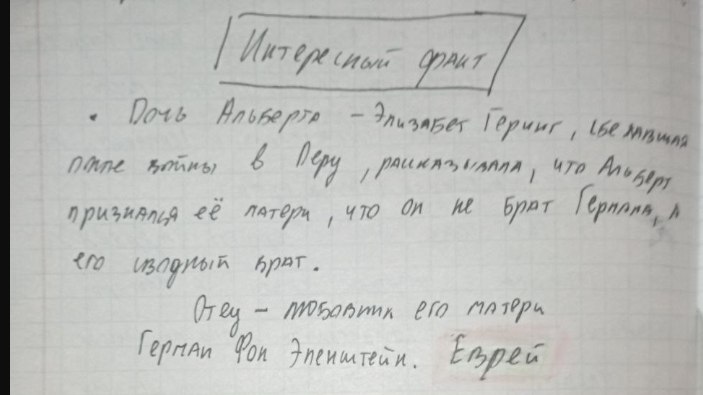 Интересный факт
• Дочь Альберта – Элизабет Геринг, сбежавшая
после войны в Перу, рассказывала, что Альберт
признался её матери, что он не брат Германа, а
его сводный брат.
Отец – любовник его матери
Герман Фон Эпенштейн. Еврей